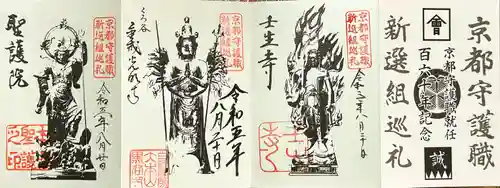 京都守護職
新選組巡礼
會
京都守護職就任
百六十年記念
誠
京都守護職
新選組巡礼
壬生寺
令和五年八月二十日
京都守護職
新選組巡礼
くろ谷
令和五年
八月二十日
京都守護職
新選組巡礼
聖護院
令和五年八月廿日
聖護
之印